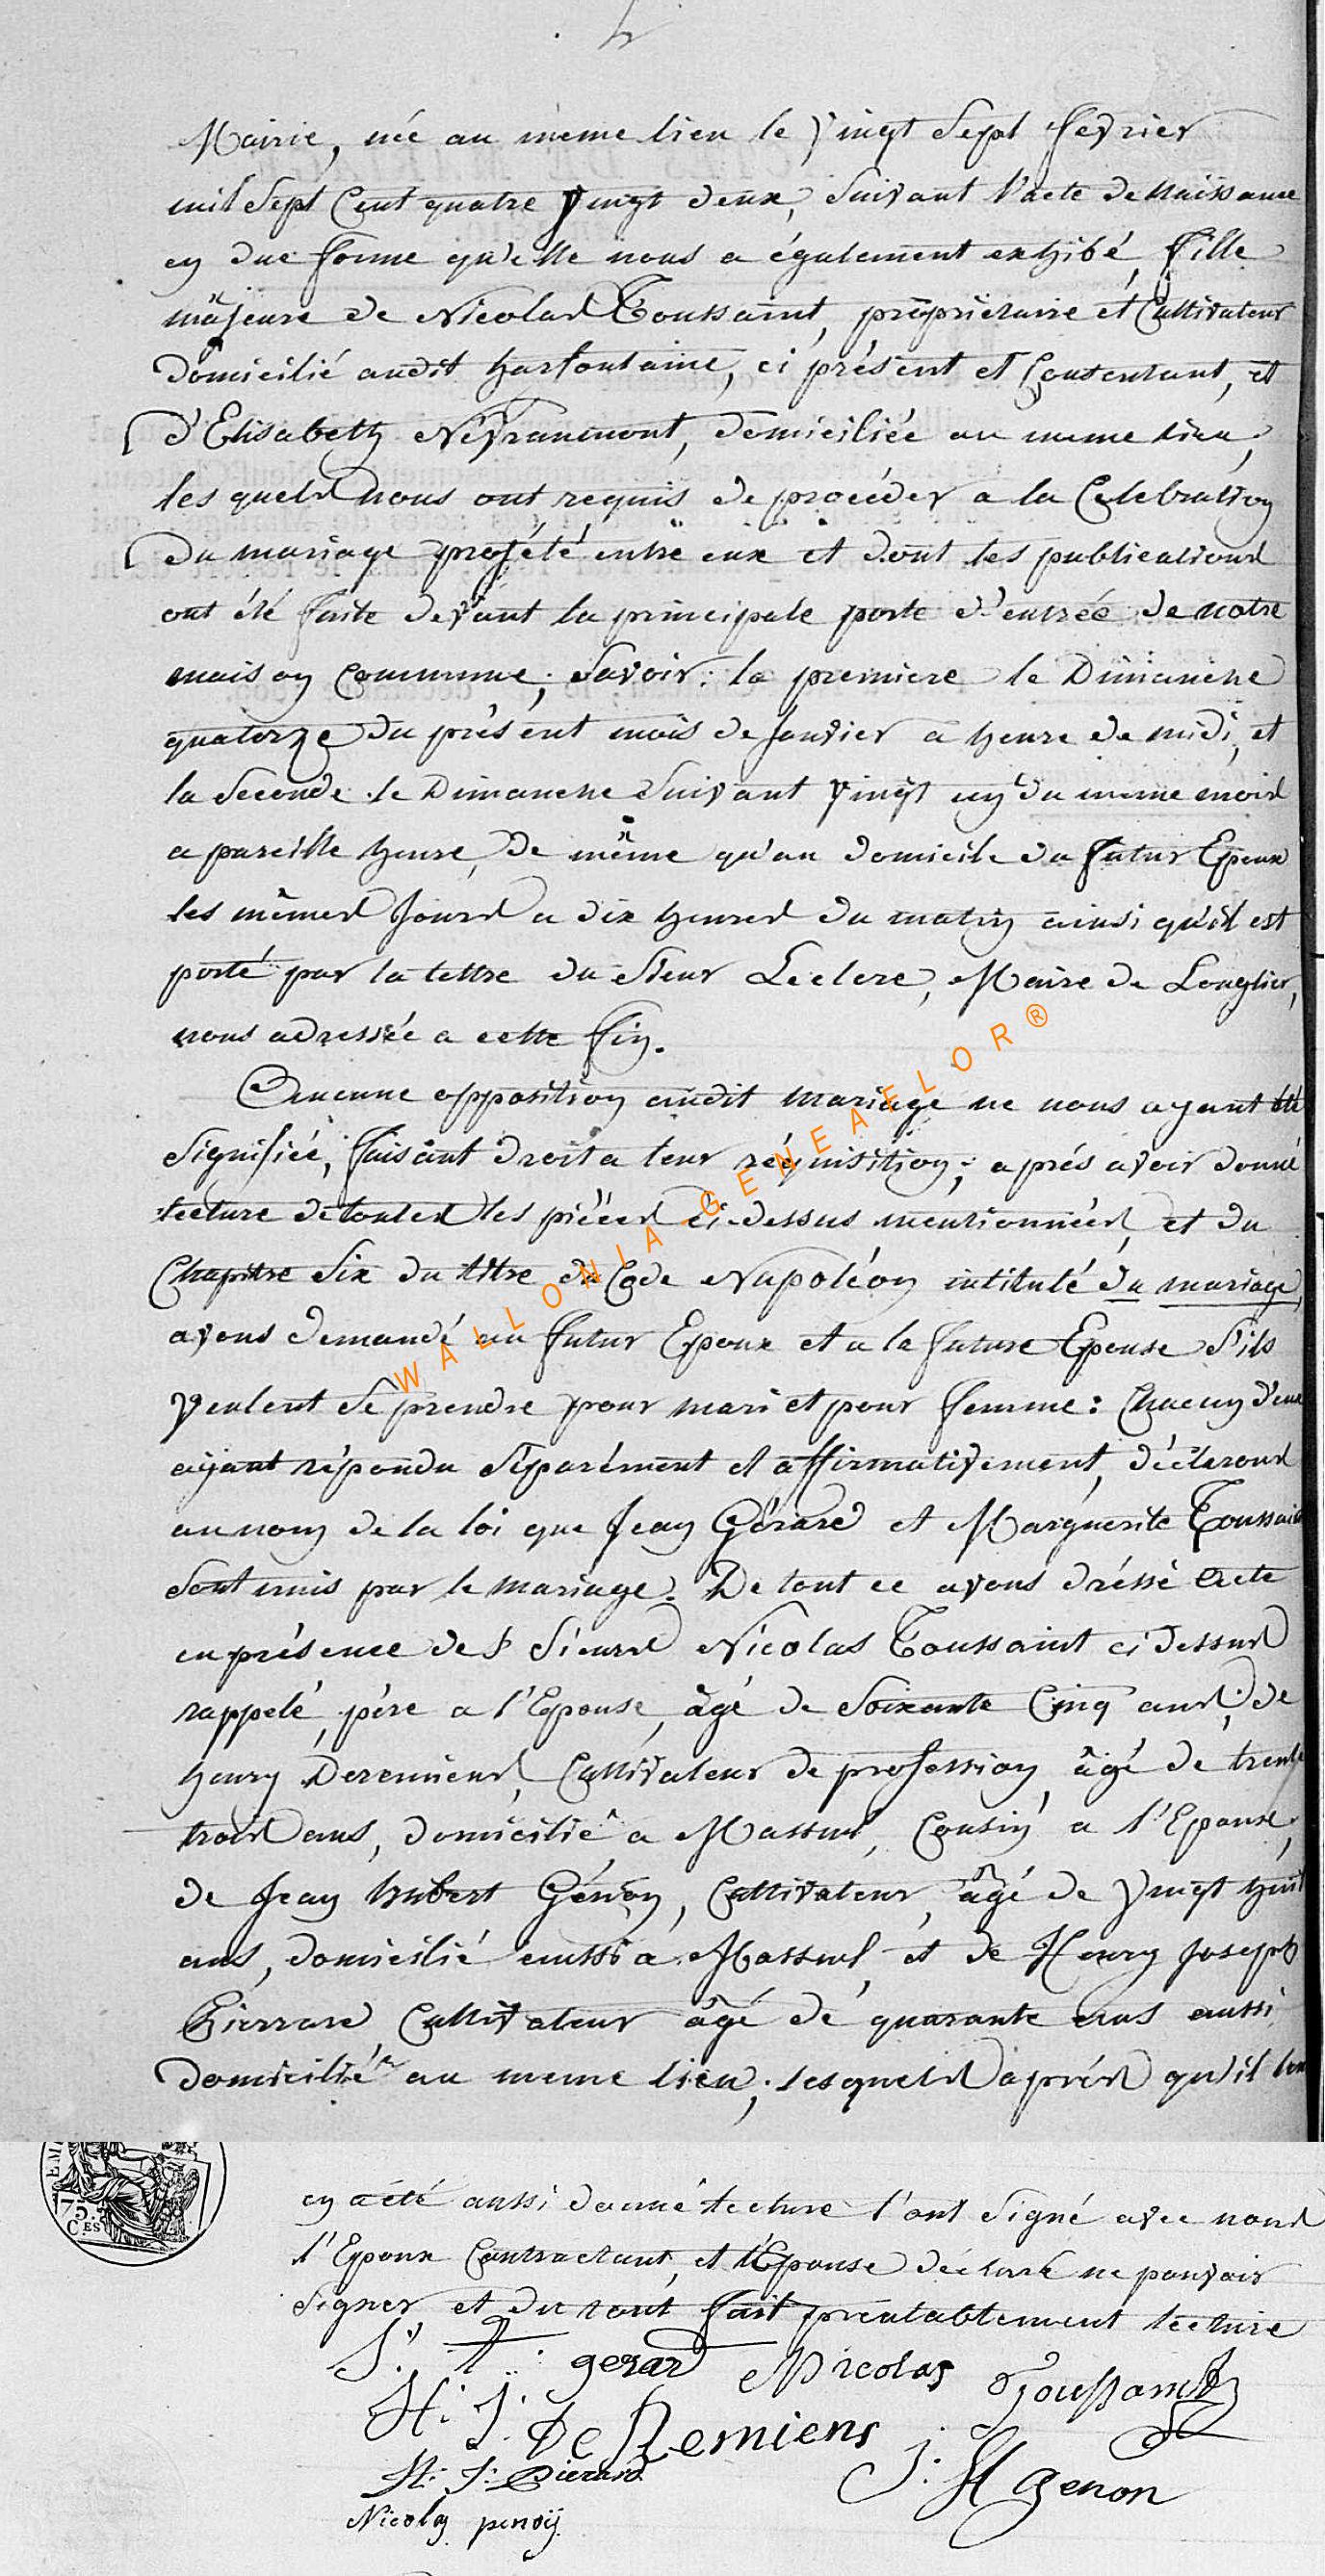 Mairie, née au même lieu le Vingt Sept fevrier
mil Sept Cent quatre Vingt deux, Suivant l'acte de naissance
en due forme qu'elle nous a également exhibé, fille
majeure de Nicolas Toussaint, propriétaire et Cultivateur
domicilié audit harfontaine, ci présent et Consentant, et
d'Elisabeth Néframmont, domiciliée au meme lieu;
les quels nous ont requis de procéder a la Celebration
du mariage projété entre eux et dont les publications
ont été faite devant la principale porte d'entrée de notre
maison Commune; Savoir: la premiere le Dimanche
quatorze du présent mois de Janvier a heure de midi, et
la Seconde le Dimanche Suivant Vingt un du meme mois
a pareille heure, de même qu'au domicile du futur Epoux
les mêmes Jours a dix heures du matin ainsi qu'il est
porté par la lettre du Sieur Leclerc, Maire de Longlier,
nous adressée a cette fin.
Aucune opposition audit mariage ne nous ayant été
Signifiée, faisant droit a leur réquisition; aprés avoir donné
lecture de toutes les piéces ci-dessus mentionnées, et du
Chapitre Six du titre du Code Napoléon intitulé du mariage,
avons demandé au futur Epoux et a la future Epouse S'ils
Veulent Se prendre pour mari et pour femme: Chacun d'eux
ayant répondu Séparément et affirmativement, déclarons
au nom de la loi que Jean Gérard et Marguerite Toussaint
Sont unis par le mariage. De tout ce avons dréssé acte
en présence des Sieurs Nicolas Toussaint ci dessus
rappelé, pére a l'Epouse, âgé de Soixante Cinq ans, de
henry Deremiens, Cultivateur de profession, âgé de trente
trois ans, domicilié a Massul, Cousin a l'Epouse,
de Jean hubert Génon, Cultivateur, âgé de Vingt huit
ans, domicilié aussi a Massul, et de Henry Joseph
Pierrard Cultivateur âgé de quarante ans aussi
domicilié au meme lieu; lesquels aprés qu'il leur
en a été aussi donné lecture l'ont Signé avec nous
l'Epoux Contractant, et l'Epouse déclaré ne pouvoir
Signer, et du tout fait préalablement lecture
gerard Nicolas Toussaint
H: J: De Remiens
J: H genon
H: J: Pierard
Nicolas penoÿ
75. Ces
WALLONIA GENEAELOR®